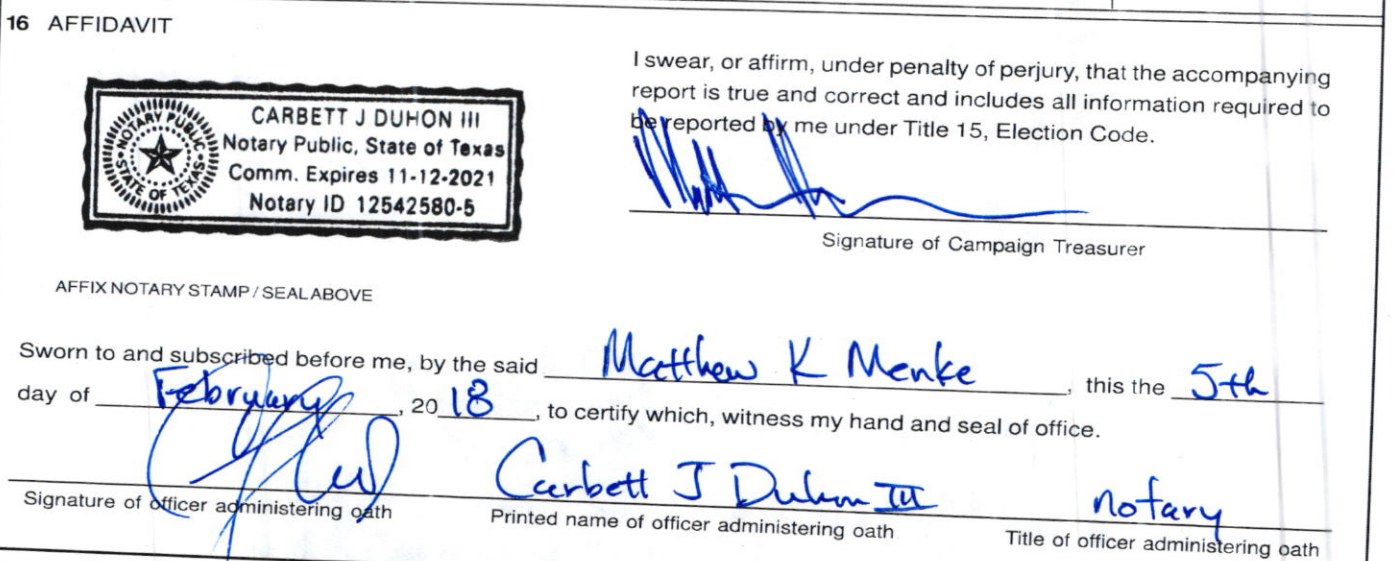 16 AFFIDAVIT
NOTARY PUBLIC
STATE OF TEXAS
CARBETT J DUHON III
Notary Public, State of Texas
Comm. Expires 11-12-2021
Notary ID 12542580-5
I swear, or affirm, under penalty of perjury, that the accompanying
report is true and correct and includes all information required to
be reported by me under Title 15, Election Code.
Signature of Campaign Treasurer
AFFIX NOTARY STAMP / SEAL ABOVE
Sworn to and subscribed before me, by the said Matthew K Menke, this the 5th
day of February, 20 18, to certify which, witness my hand and seal of office.
Carbett J Duhon III
notary
Signature of officer administering oath
Printed name of officer administering oath
Title of officer administering oath